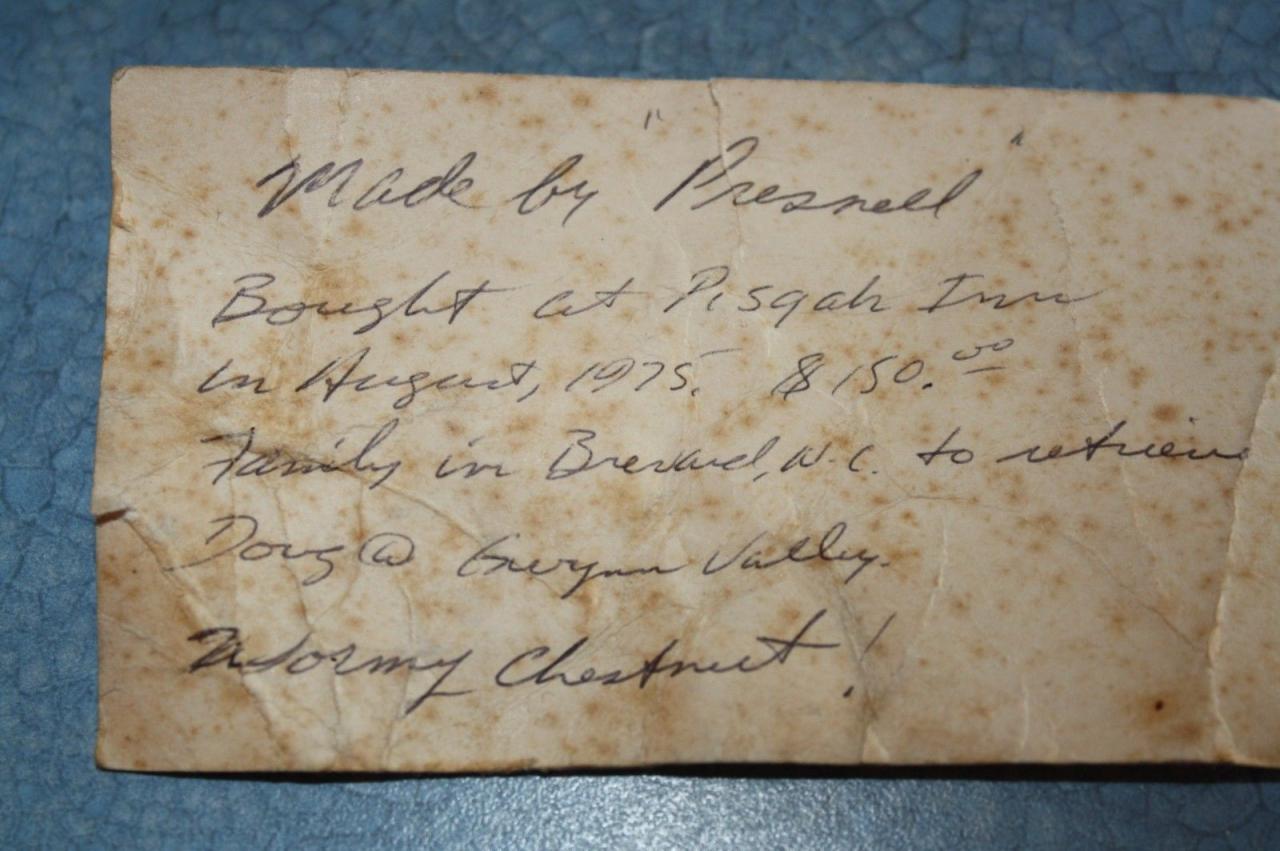 Made by "Presnell"
Bought at Pisgah Inn
in August, 1975. $150.00
Family in Brevard, N.C. to retrieve
Doug @ Gwynn Valley.
Wormy Chestnut!